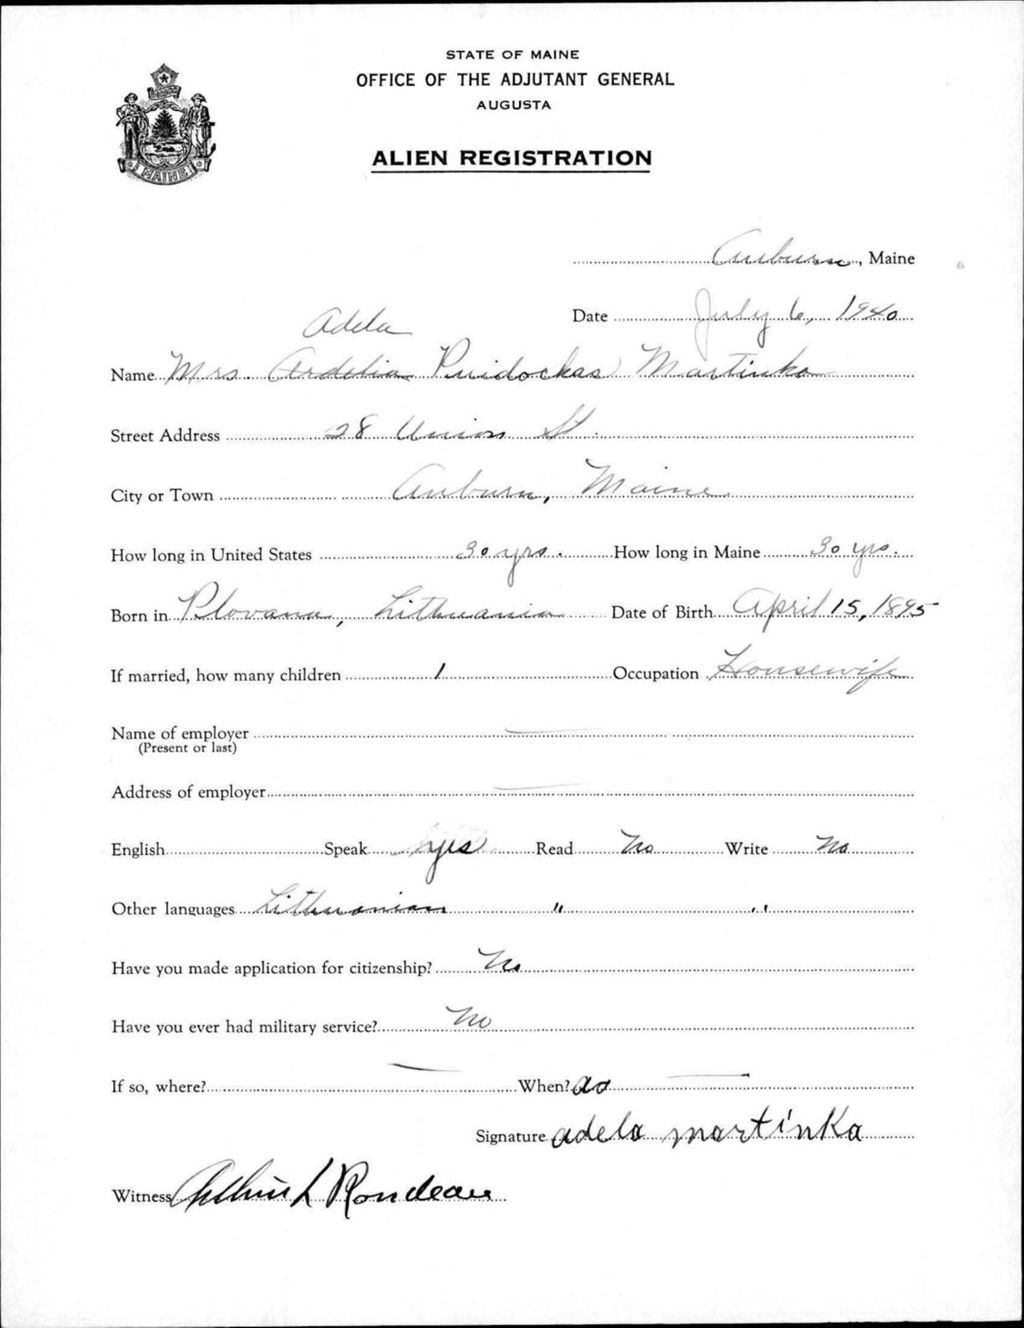 STATE OF MAINE
OFFICE OF THE ADJUTANT GENERAL
AUGUSTA
ALIEN REGISTRATION
MAINE
Auburn, Maine
Date July 6, 1940
Adela
Name Mrs. Ardelia Puidockas Martinka
Street Address 28 Union St.
City or Town Auburn, Maine
How long in United States 30 yrs. How long in Maine 30 yrs.
Born in Plovana, Lithuania Date of Birth April 15, 1895
If married, how many children 1 Occupation Housewife
Name of employer —
(Present or last)
Address of employer —
English Speak yes Read No Write No
Other languages Lithuanian " "
Have you made application for citizenship? No
Have you ever had military service? No
If so, where? — When? —
Signature adela martinka
Witness Arthur L Rondeau